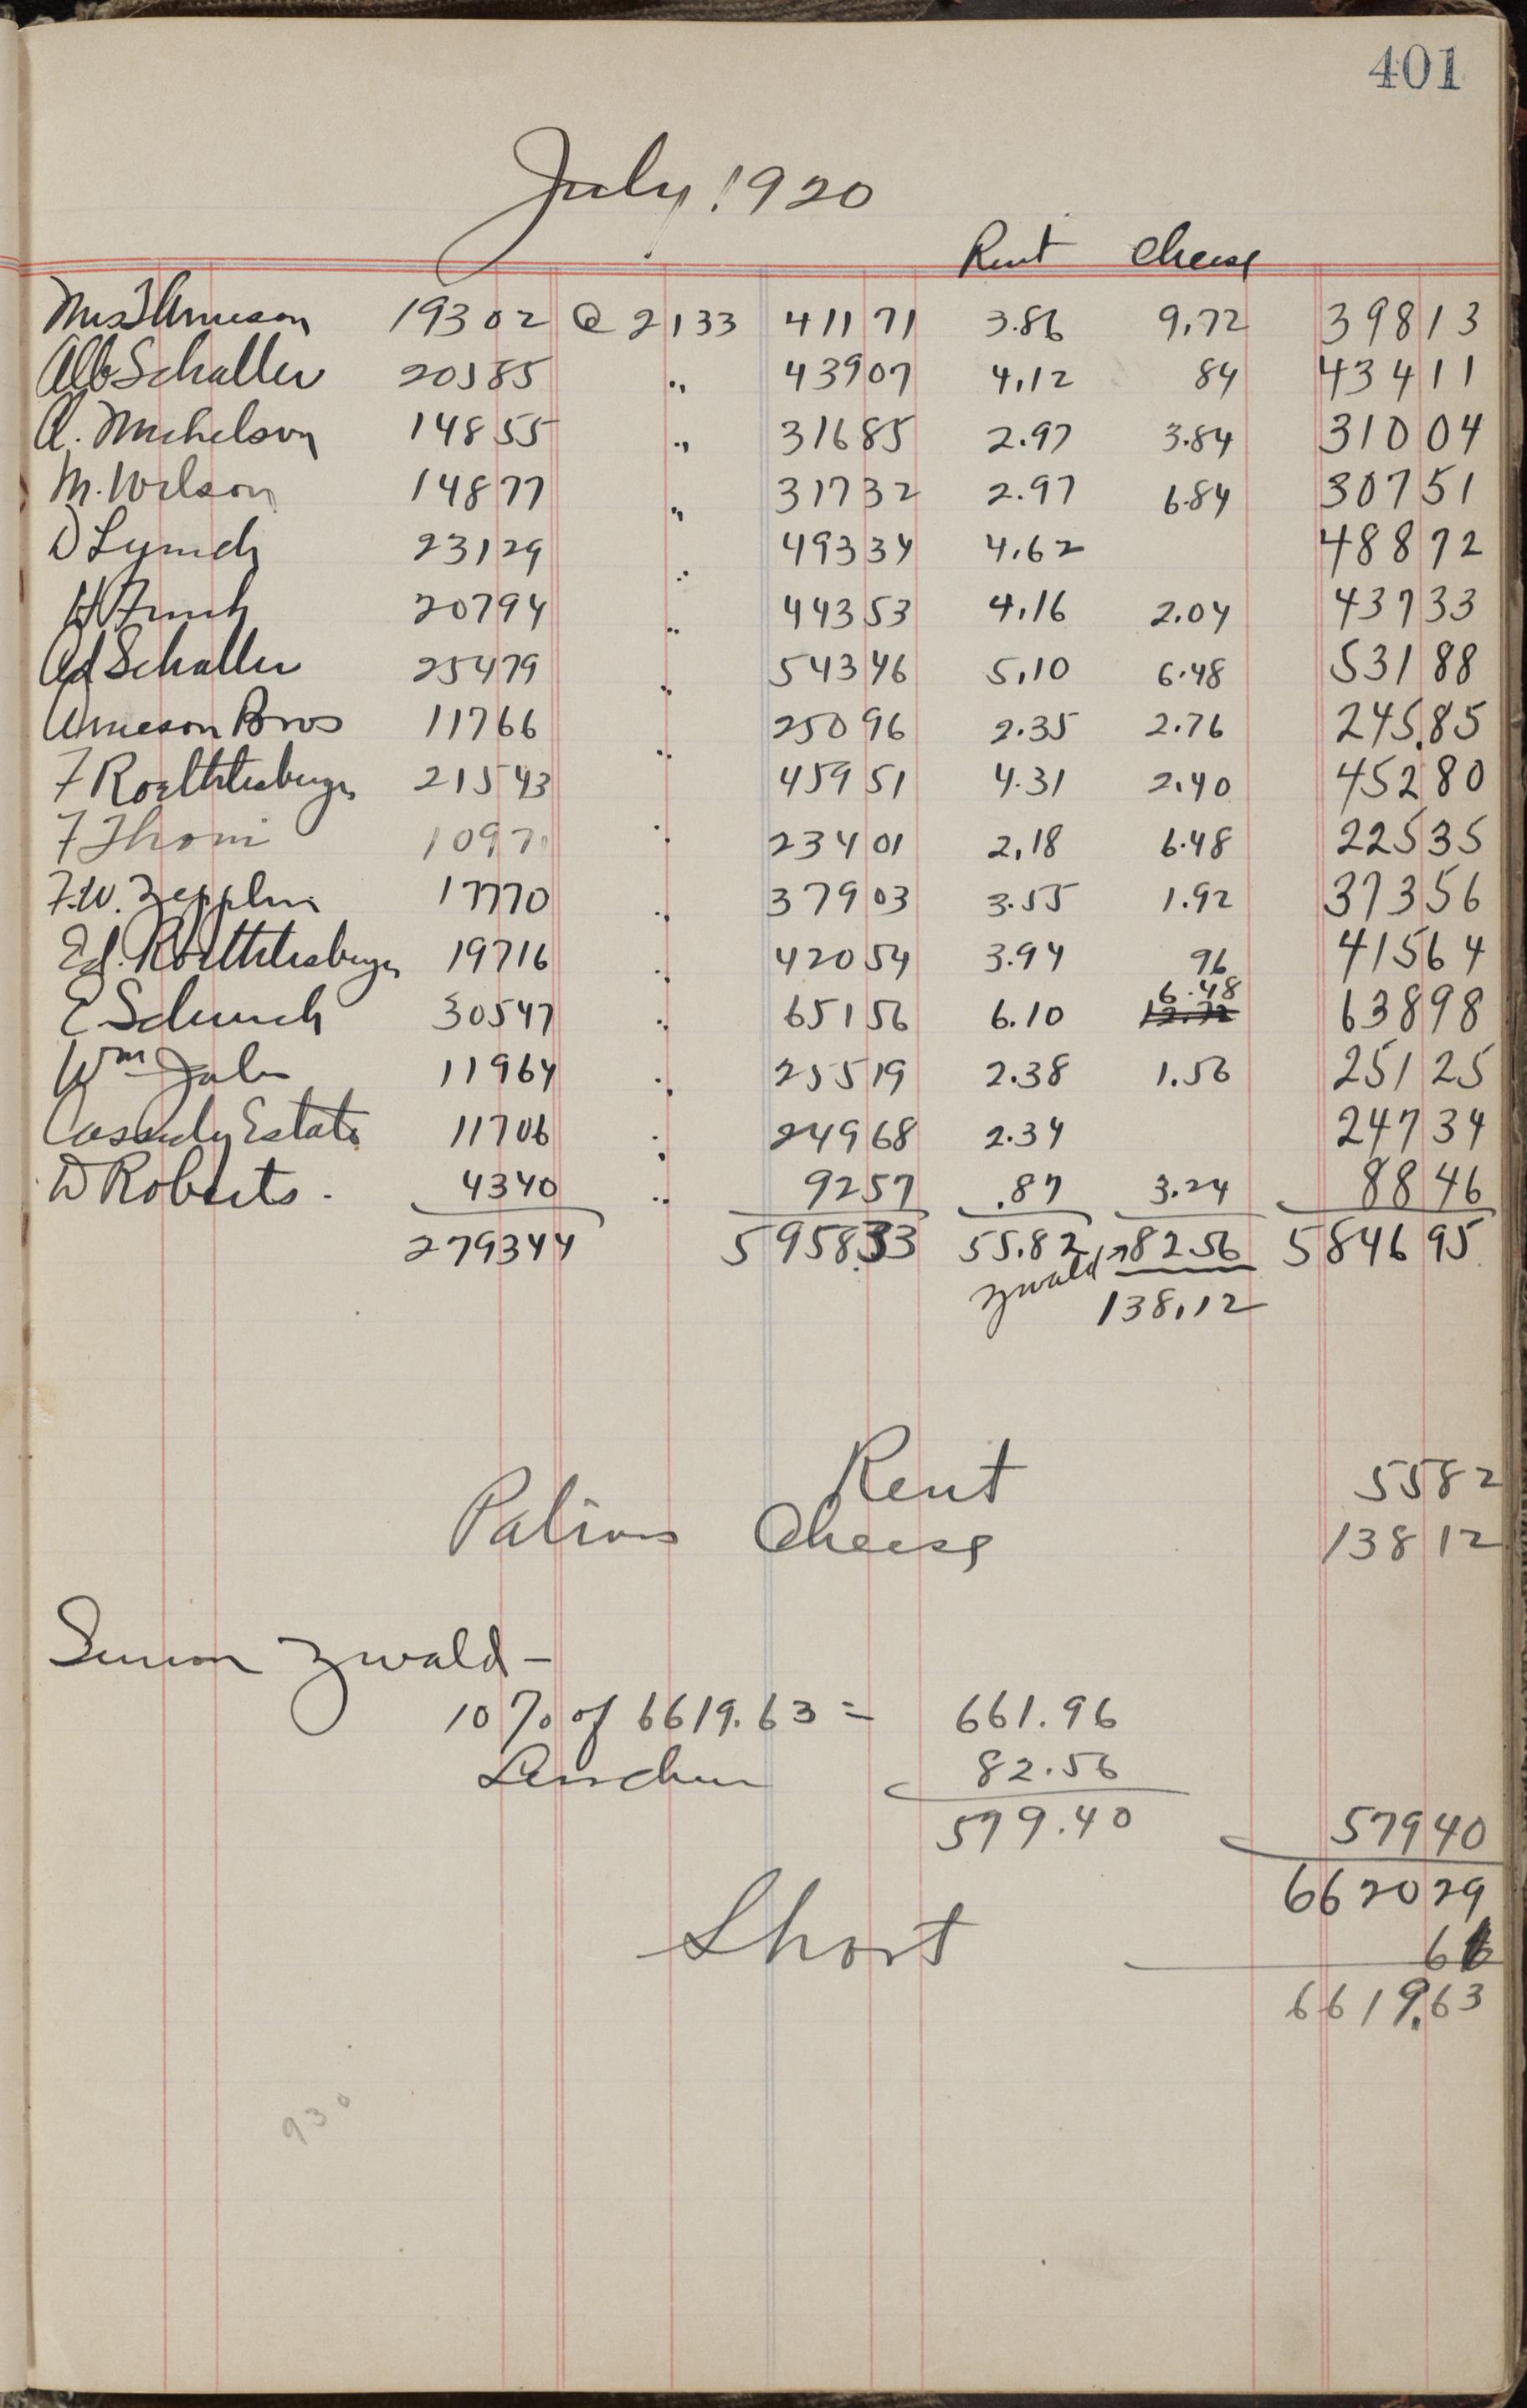 401
July 1920
Rent Cheese
Mrs T Arneson 19302 @ 2133 41171 3.86 9.72 39813
Alb Schaller 20585 " 43907 4.12 84 43411
A. Michelson 14855 " 31685 2.97 3.84 31004
M. Wilson 14877 " 31732 2.97 6.84 30751
D Lynch 23129 " 49334 4.62 48872
H Funk 20794 " 44353 4.16 2.04 43733
Ad Schaller 25479 " 54346 5.10 6.48 53188
Arneson Bros 11766 " 25096 2.35 2.76 245.85
F Roethlisberger 21543 " 45951 4.31 2.40 45280
F Thoni 1097 " 23401 2.18 6.48 22535
F.W. Zepplin 17770 " 37903 3.55 1.92 37356
Ed. Roethlisberger 19716 " 42054 3.94 96 41564
6.48
E Schunch 30547 " 65156 6.10 12.72 63898
Wm Jahn 11964 " 25519 2.38 1.56 25125
Cassidy Estate 11706 " 24968 2.34 24734
D Roberts. 4340 " 9257 .87 3.24 8846
279344 595833 55.82 82.56 584695
Zwald 138.12
Rent 5582
Patrons Cheese 13812
Simon Zwald –
10% of 6619.63 = 661.96
Less cheese 82.56
579.40 57940
662029
Short 66
6619.63
930